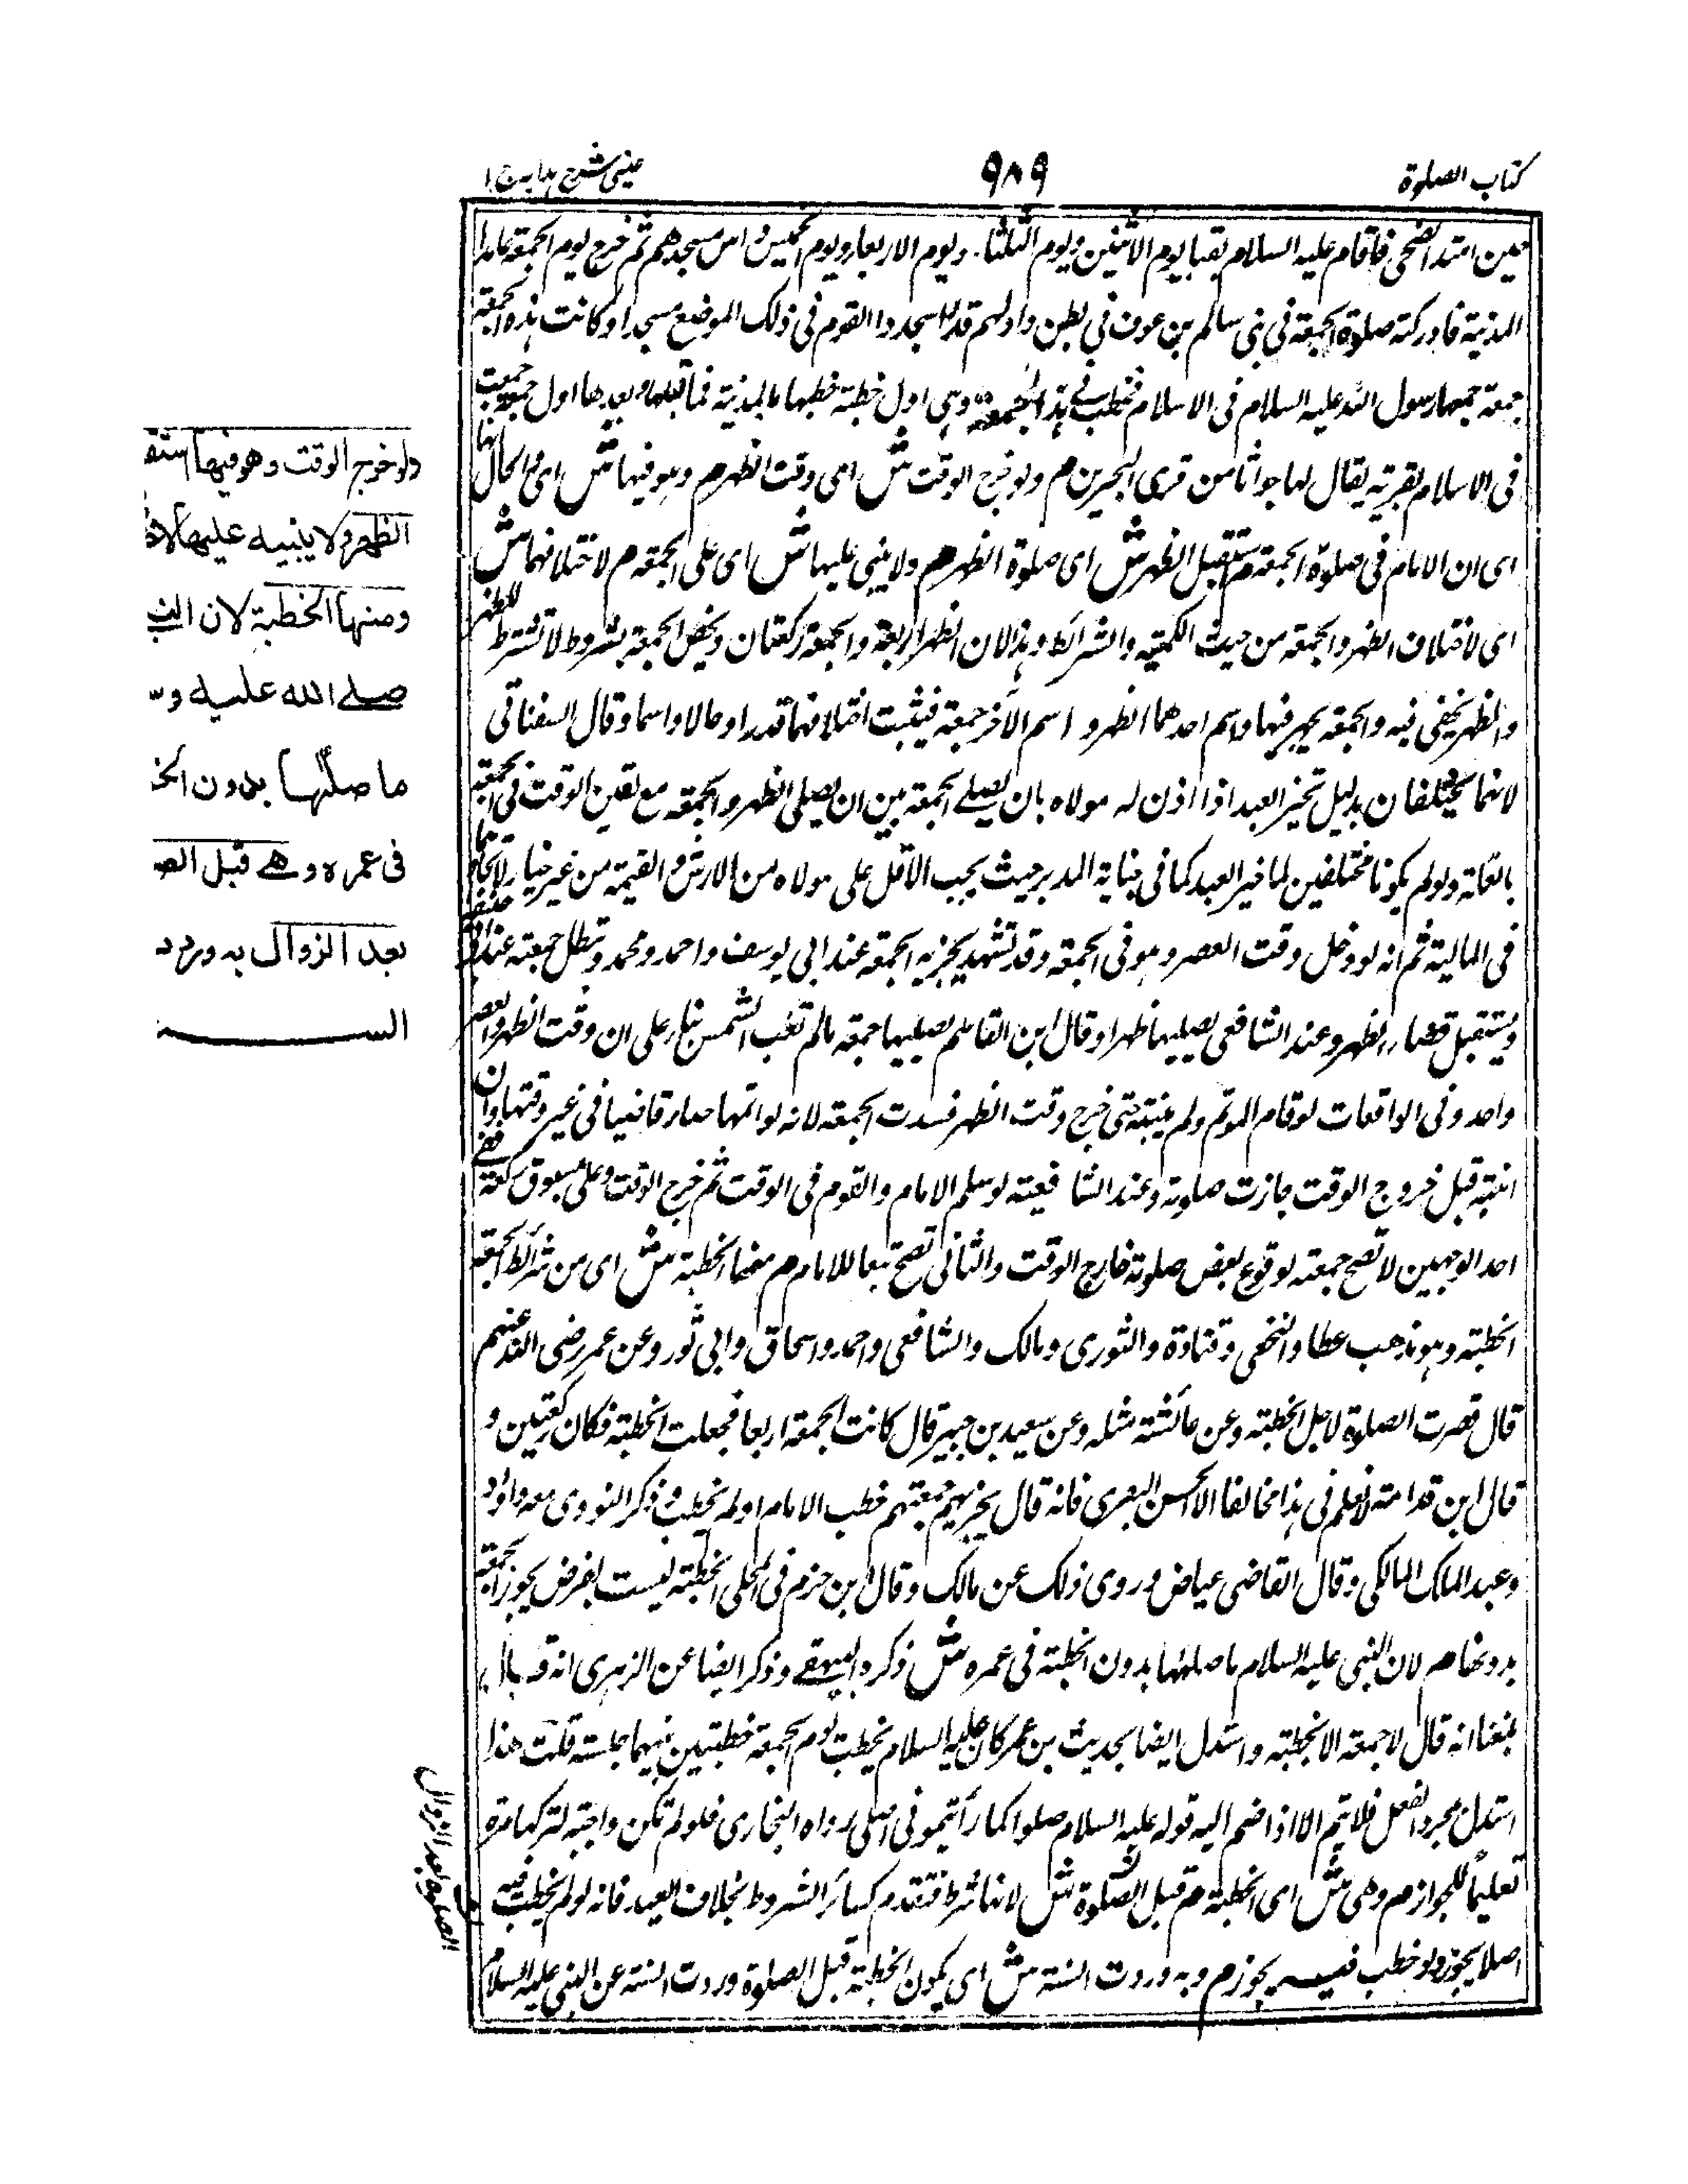 كتاب الصلوة
٩٨٩
عينى شرح هدايه ج ١
حين امتد الضحى فاقام عليه السلام بقبا يوم الاثنين ويوم الثلثاء ويوم الاربعا ويوم الخميس واسس مسجدهم ثم خرج يوم الجمعة عامدا
المدينة فادركته صلوة الجمعة فى بنى سالم بن عوف فى بطن واد لهم قد اتخذوا القوم فى ذلك الموضع مسجدا وكانت هذه الجمعة
جمعة جمعها رسول الله عليه السلام فى الاسلام فخطب فى هذه الجمعة وهى اول خطبة خطبها بالمدينة فما قبلها وبعدها اول جمعة جمعت
فى الاسلام بقرية يقال لها جواثا من قرى البحرين م ولو خرج الوقت ش اى وقت الظهر م وهو فيها ش اى والحال انها
اى ان الامام فى صلوة الجمعة م استقبل الظهر ش اى صلوة الظهر م ولا يبنى عليها ش اى على الجمعة م لاختلافهما ش
اى لاختلاف الظهر والجمعة من حيث الكمية والشرائط وهذا لان الظهر اربعة والجمعة ركعتان وتخص الجمعة بشروط لا تشترط للظهر
والظهر يخفى فيه والجمعة يجهر فيها واسم احدهما الظهر و اسم الآخر جمعة فيثبت اختلافهما قدرا وحالا واسما وقال السغناقى
لانهما يختلفان بدليل تخير العبد اذا اذن له مولاه بان يصلى الجمعة بين ان يصلى الظهر والجمعة مع تعين الوقت فى الجمعة
ولو لم يكونا مختلفين لما خير العبد كما فى جناية المدبر حيث يجب الاقل على مولاه من الارش والقيمة من غير خيار لاتحادهما
فى المالية ثم انه لو دخل وقت العصر وهو فى الجمعة وقد تشهد يجزيه الجمعة عند ابى يوسف واحمد ومحمد وتبطل جمعته عند ابى حنيفة
ويستقبل قضاء الظهر وعند الشافعى يصليها ظهرا وقال ابن القاسم يصليها جمعة ما لم تغب الشمس بناء على ان وقت الظهر والعصر
واحد وفى الواقعات لو قام الموتم ولم ينتبه حتى خرج وقت الظهر فسدت الجمعة لانه لو اتمها صار قاضيا فى غير وقتها وان
انتبه قبل خروج الوقت جازت صلوته وعند الشافعية لو سلم الامام والقوم فى الوقت ثم خرج الوقت وعلى مسبوق ركعة ففى
احد الوجهين لا تصح جمعته لوقوع بعض صلوته خارج الوقت والثانى تصح تبعا للامام م ومنها الخطبة ش اى من شرائط الجمعة
الخطبة وهو مذهب عطا والنخعى وقتادة والثورى ومالك والشافعى واحمد واسحاق وابى ثور وعن عمر رضى الله عنهم
قال قصرت الصلوة لاجل الخطبة وعن عائشة مثله وعن سعيد بن جبير قال كانت الجمعة اربعا فجعلت الخطبة فكان ركعتين و
قال ابن قدامة لا نعلم فى هذا مخالفا الا الحسن البصرى فانه قال يجزيهم جمعتهم خطب الامام او لم يخطب وذكر النووى معه داؤد
وعبد الملك المالكى وقال القاضى عياض وروى ذلك عن مالك وقال ابن حزم فى المحلى الخطبة ليست بفرض يجوز الجمعة
بدونها م لان النبى عليه السلام ما صلاها بدون الخطبة فى عمره ش ذكره البيهقى وذكر ايضا عن الزهرى انه قال
بلغنا انه قال لا جمعة الا بخطبة واستدل ايضا بحديث بن عمر كان عليه السلام يخطب يوم الجمعة خطبتين بينهما جلسة قلت هذا
استدل بمجرد الفعل فلا يتم الا اذا ضم اليه قوله عليه السلام صلوا كما رأيتمونى اصلى رواه البخارى فلو لم تكن واجبة لتركها مرة
تعليما للجواز م وهى ش اى الخطبة م قبل الصلوة ش لانها شرط فتقدم كسائر الشروط بخلاف العيد فانه لو لم يخطب فيه
اصلا يجوز ولو خطب فيه يجوز م وبه وردت السنة ش اى يكون الخطبة قبل الصلوة وردت السنة عن النبى عليه السلام
ولو خرج الوقت وهو فيها استقـ
الظهر ولا يبنيه عليها لاخـ
ومنها الخطبة لان النبـ
صلى الله عليه وسـ
ما صلّها بدون الخـ
فى عمره وهى قبل الصـ
بعد الزوال به ورد
السـ
الصلوة بعد الزوال